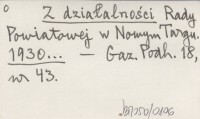 Z działalności Rady
Powiatowej w Nowym Targu.
1930... — Gaz. Podh. 18,
nr 43.